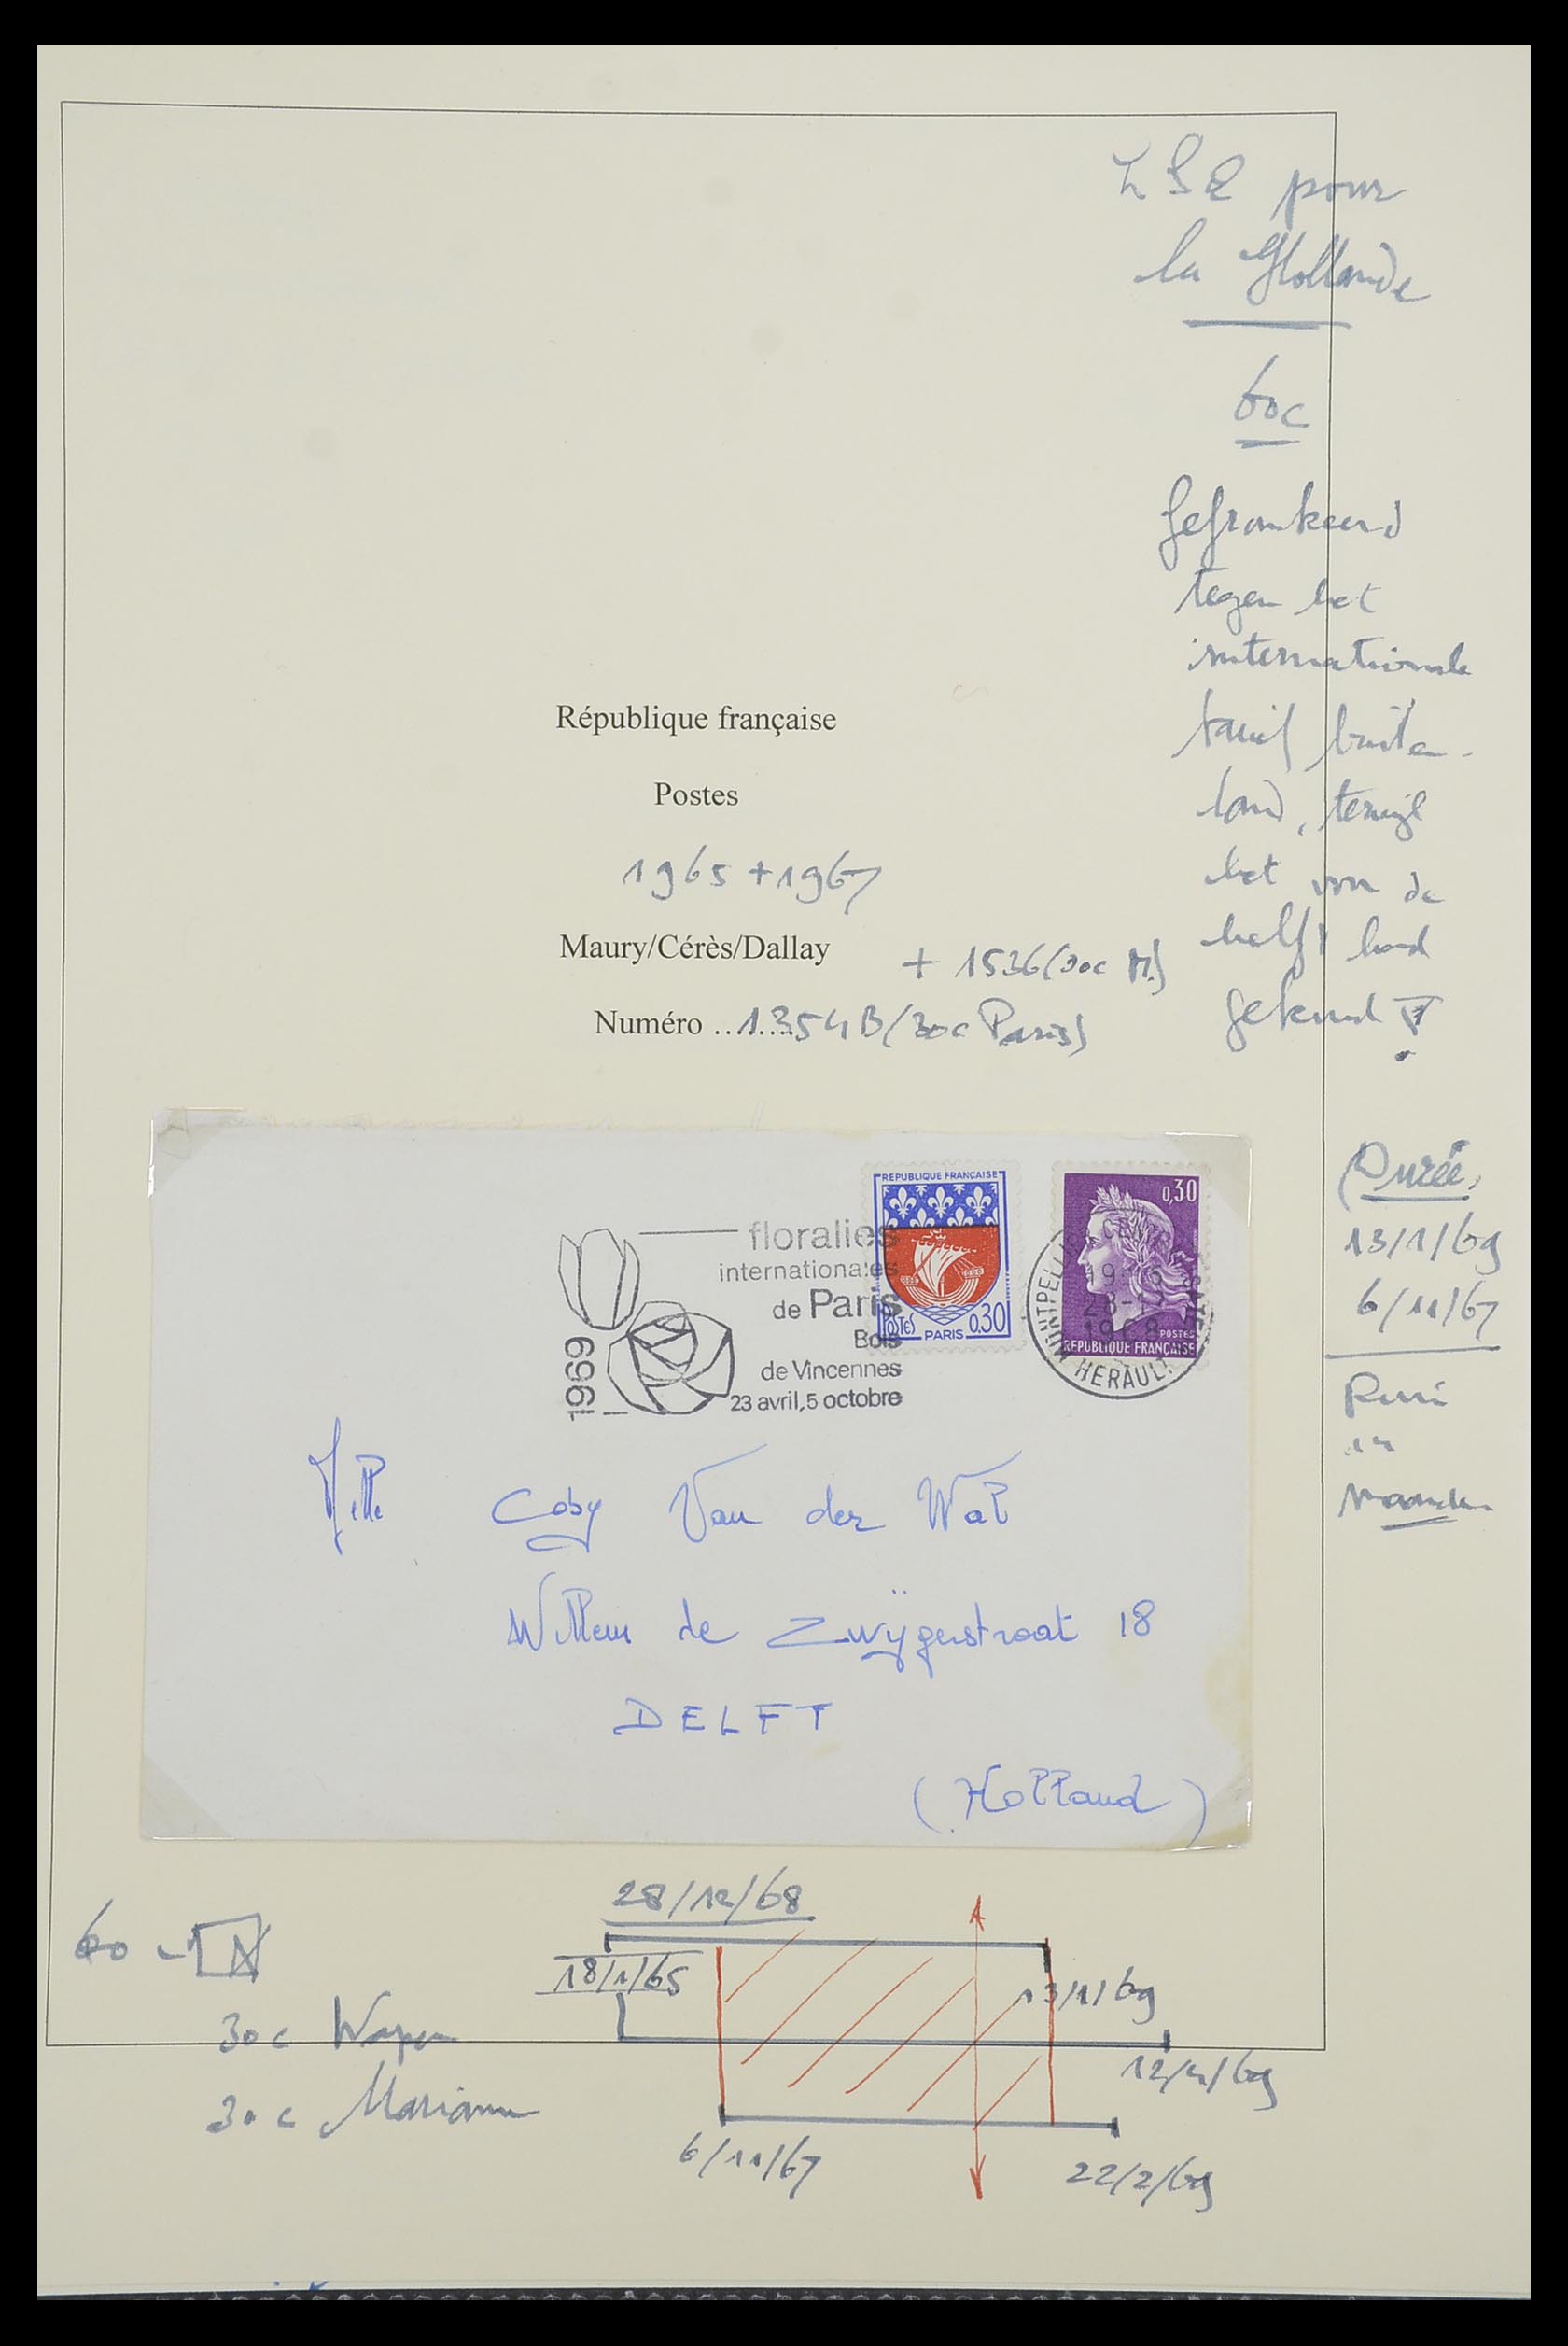 LSE pour
la Hollande
60c
Gefrankeerd
tegen het
internationale
tarief buiten-
land, terwijl
het von de
helft had
gekund !
République française
Postes
1965 + 1967
Maury/Cérès/Dallay
+ 1536 (30c M.)
Numéro ........ 1354 B (30c Paris)
Durée,
13/1/69
6/11/67
maanden
REPUBLIQUE FRANÇAISE
POSTES
PARIS
0,30
0,30
POSTES
REPUBLIQUE FRANÇAISE
MONTPELLIER
19
28-12
1968
HERAULT
floralies
internationales
de Paris
Bois
de Vincennes
23 avril, 5 octobre
1969
Melle Coby Van der Wal
Willem de Zwijgerstraat 18
DELFT
(Holland)
60 c
30 c Wapen
30 c Marianne
28/12/68
18/1/65
13/1/69
12/4/69
6/11/67
22/2/69